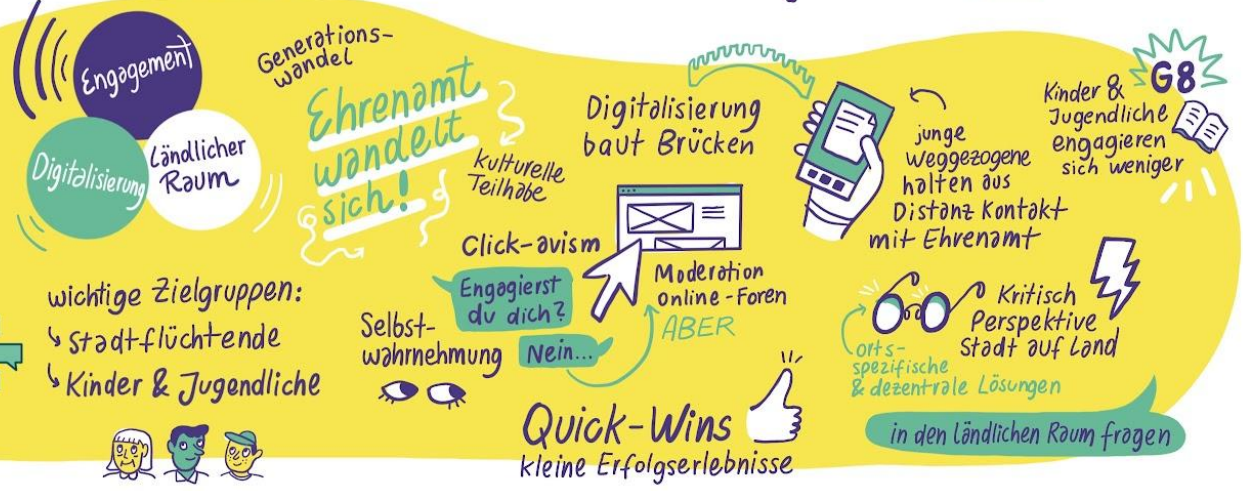 Engagement
Digitalisierung
Ländlicher
Raum
Generations-
wandel
Ehrenamt
wandelt
sich!
kulturelle
Teilhabe
Digitalisierung
baut Brücken
junge
Weggezogene
halten aus
Distanz Kontakt
mit Ehrenamt
G8
Kinder &
Jugendliche
engagieren
sich weniger
wichtige Zielgruppen:
Stadtflüchtende
Kinder & Jugendliche
Click-avism
Engagierst
du dich?
Nein...
Selbst-
wahrnehmung
Moderation
online-Foren
ABER
Quick-Wins
kleine Erfolgserlebnisse
Kritisch
Perspektive
Stadt auf Land
orts-
spezifische
& dezentrale Lösungen
in den ländlichen Raum fragen